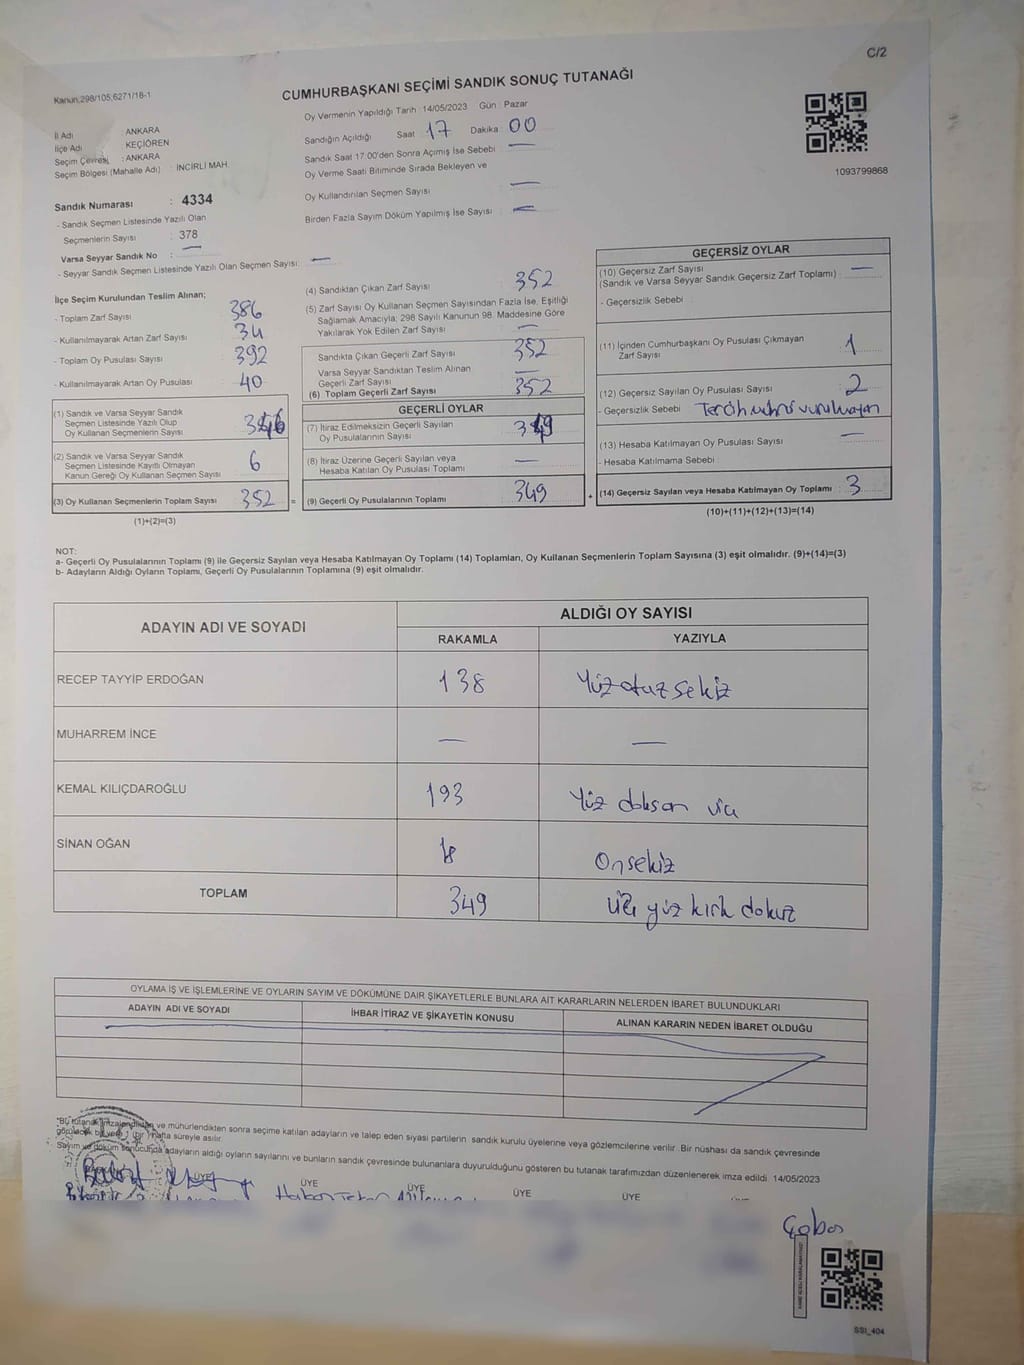 C/2
Kanun;298/105;6271/18-1
CUMHURBAŞKANI SEÇİMİ SANDIK SONUÇ TUTANAĞI
Oy Vermenin Yapıldığı Tarih : 14/05/2023 Gün : Pazar
Sandığın Açıldığı Saat 17 Dakika : 00
Sandık Saat 17:00'den Sonra Açımış İse Sebebi : —
Oy Verme Saati Bitiminde Sırada Bekleyen ve
Oy Kullandırılan Seçmen Sayısı —
Birden Fazla Sayım Döküm Yapılmış İse Sayısı : —
1093799868
İl Adı : ANKARA
İlçe Adı : KEÇİÖREN
Seçim Çevresi : ANKARA
Seçim Bölgesi (Mahalle Adı) : İNCİRLİ MAH.
Sandık Numarası : 4334
- Sandık Seçmen Listesinde Yazılı Olan
Seçmenlerin Sayısı : 378
Varsa Seyyar Sandık No : —
- Seyyar Sandık Seçmen Listesinde Yazılı Olan Seçmen Sayısı: —
İlçe Seçim Kurulundan Teslim Alınan;
- Toplam Zarf Sayısı 386
- Kullanılmayarak Artan Zarf Sayısı 34
- Toplam Oy Pusulası Sayısı 392
- Kullanılmayarak Artan Oy Pusulası 40
(1) Sandık ve Varsa Seyyar Sandık
Seçmen Listesinde Yazılı Olup
Oy Kullanan Seçmenlerin Sayısı 346
(2) Sandık ve Varsa Seyyar Sandık
Seçmen Listesinde Kayıtlı Olmayan
Kanun Gereği Oy Kullanan Seçmen Sayısı 6
(3) Oy Kullanan Seçmenlerin Toplam Sayısı 352 =
(1)+(2)=(3)
(4) Sandıktan Çıkan Zarf Sayısı 352
(5) Zarf Sayısı Oy Kullanan Seçmen Sayısından Fazla İse, Eşitliği
Sağlamak Amacıyla; 298 Sayılı Kanunun 98. Maddesine Göre
Yakılarak Yok Edilen Zarf Sayısı —
Sandıkta Çıkan Geçerli Zarf Sayısı 352
Varsa Seyyar Sandıktan Teslim Alınan
Geçerli Zarf Sayısı —
(6) Toplam Geçerli Zarf Sayısı 352
GEÇERLİ OYLAR
(7) İtiraz Edilmeksizin Geçerli Sayılan
Oy Pusulalarının Sayısı 349
(8) İtiraz Üzerine Geçerli Sayılan veya
Hesaba Katılan Oy Pusulası Toplamı —
(9) Geçerli Oy Pusulalarının Toplamı 349 +
GEÇERSİZ OYLAR
(10) Geçersiz Zarf Sayısı
(Sandık ve Varsa Seyyar Sandık Geçersiz Zarf Toplamı) : —
- Geçersizlik Sebebi :
(11) İçinden Cumhurbaşkanı Oy Pusulası Çıkmayan
Zarf Sayısı : 1
(12) Geçersiz Sayılan Oy Pusulası Sayısı : 2
- Geçersizlik Sebebi : Tercih mührü vurulmayan
(13) Hesaba Katılmayan Oy Pusulası Sayısı : —
- Hesaba Katılmama Sebebi :
(14) Geçersiz Sayılan veya Hesaba Katılmayan Oy Toplamı : 3
(10)+(11)+(12)+(13)=(14)
NOT:
a- Geçerli Oy Pusulalarının Toplamı (9) ile Geçersiz Sayılan veya Hesaba Katılmayan Oy Toplamı (14) Toplamları, Oy Kullanan Seçmenlerin Toplam Sayısına (3) eşit olmalıdır. (9)+(14)=(3)
b- Adayların Aldığı Oyların Toplamı, Geçerli Oy Pusulalarının Toplamına (9) eşit olmalıdır.
ADAYIN ADI VE SOYADI ALDIĞI OY SAYISI
RAKAMLA YAZIYLA
RECEP TAYYİP ERDOĞAN 138 Yüz otuz sekiz
MUHARREM İNCE — —
KEMAL KILIÇDAROĞLU 193 Yüz doksan üç
SİNAN OĞAN 18 Onsekiz
TOPLAM 349 Üç yüz kırk dokuz
OYLAMA İŞ VE İŞLEMLERİNE VE OYLARIN SAYIM VE DÖKÜMÜNE DAİR ŞİKAYETLERLE BUNLARA AİT KARARLARIN NELERDEN İBARET BULUNDUKLARI
ADAYIN ADI VE SOYADI İHBAR İTİRAZ VE ŞİKAYETİN KONUSU ALINAN KARARIN NEDEN İBARET OLDUĞU
"Bu tutanak imzalandıktan ve mühürlendikten sonra seçime katılan adayların ve talep eden siyasi partilerin sandık kurulu üyelerine veya gözlemcilerine verilir. Bir nüshası da sandık çevresinde
görülecek bir yere 1 (bir) hafta süreyle asılır.
Sayım ve döküm sonucunda adayların aldığı oyların sayılarını ve bunların sandık çevresinde bulunanlara duyurulduğunu gösteren bu tutanak tarafımızdan düzenlenerek imza edildi. 14/05/2023
ÜYE ÜYE ÜYE ÜYE ÜYE
SSI_404